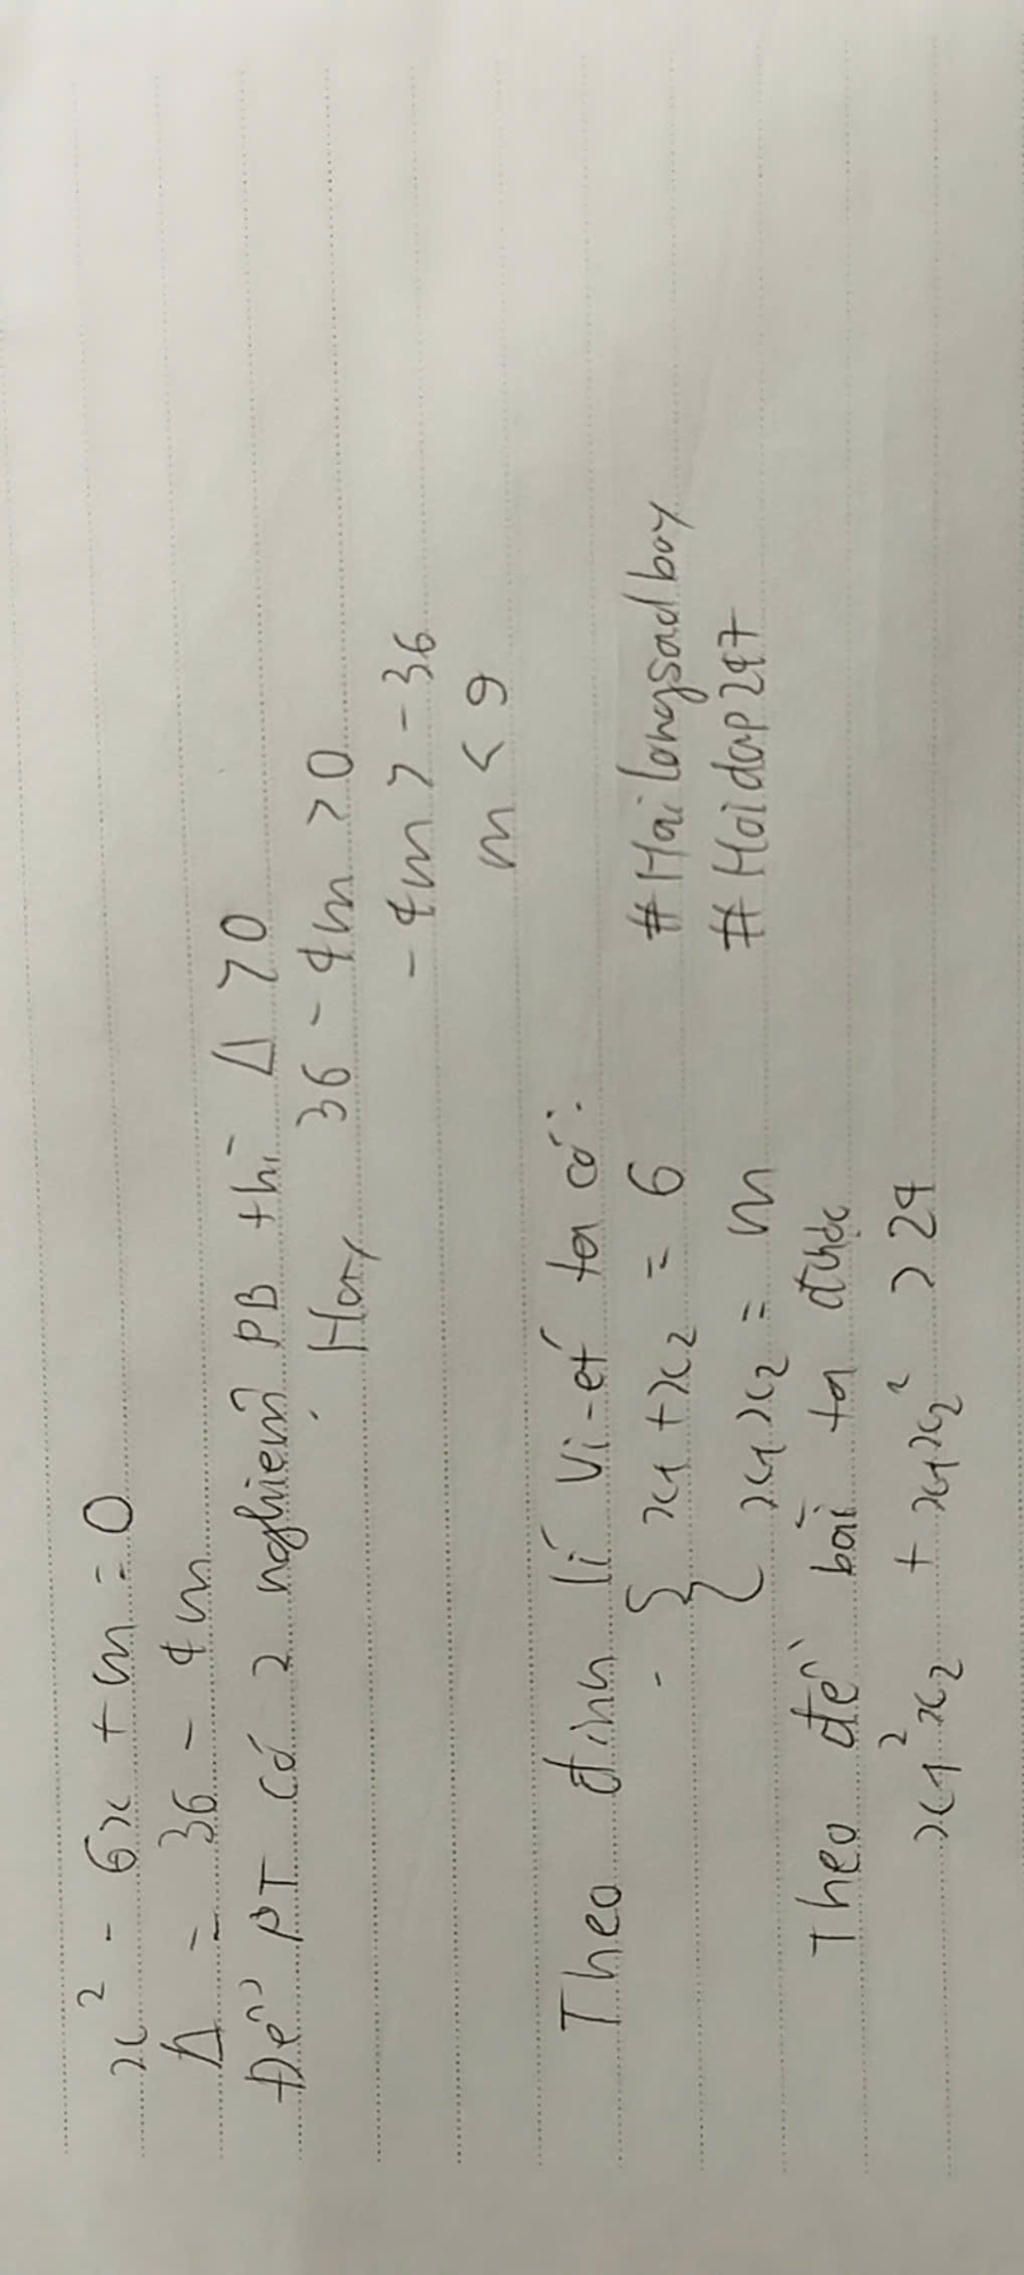 x² - 6x + m = 0
Δ = 36 - 4m
Để PT có 2 nghiệm PB thì Δ > 0
Hay 36 - 4m > 0
- 4m > - 36
m < 9
Theo định lí Vi-ét ta có:
{ x1 + x2 = 6 #Hailongsadboy
{ x1x2 = m #Hoidap247
Theo đề bài ta được
x1²x2 + x1x2² > 24